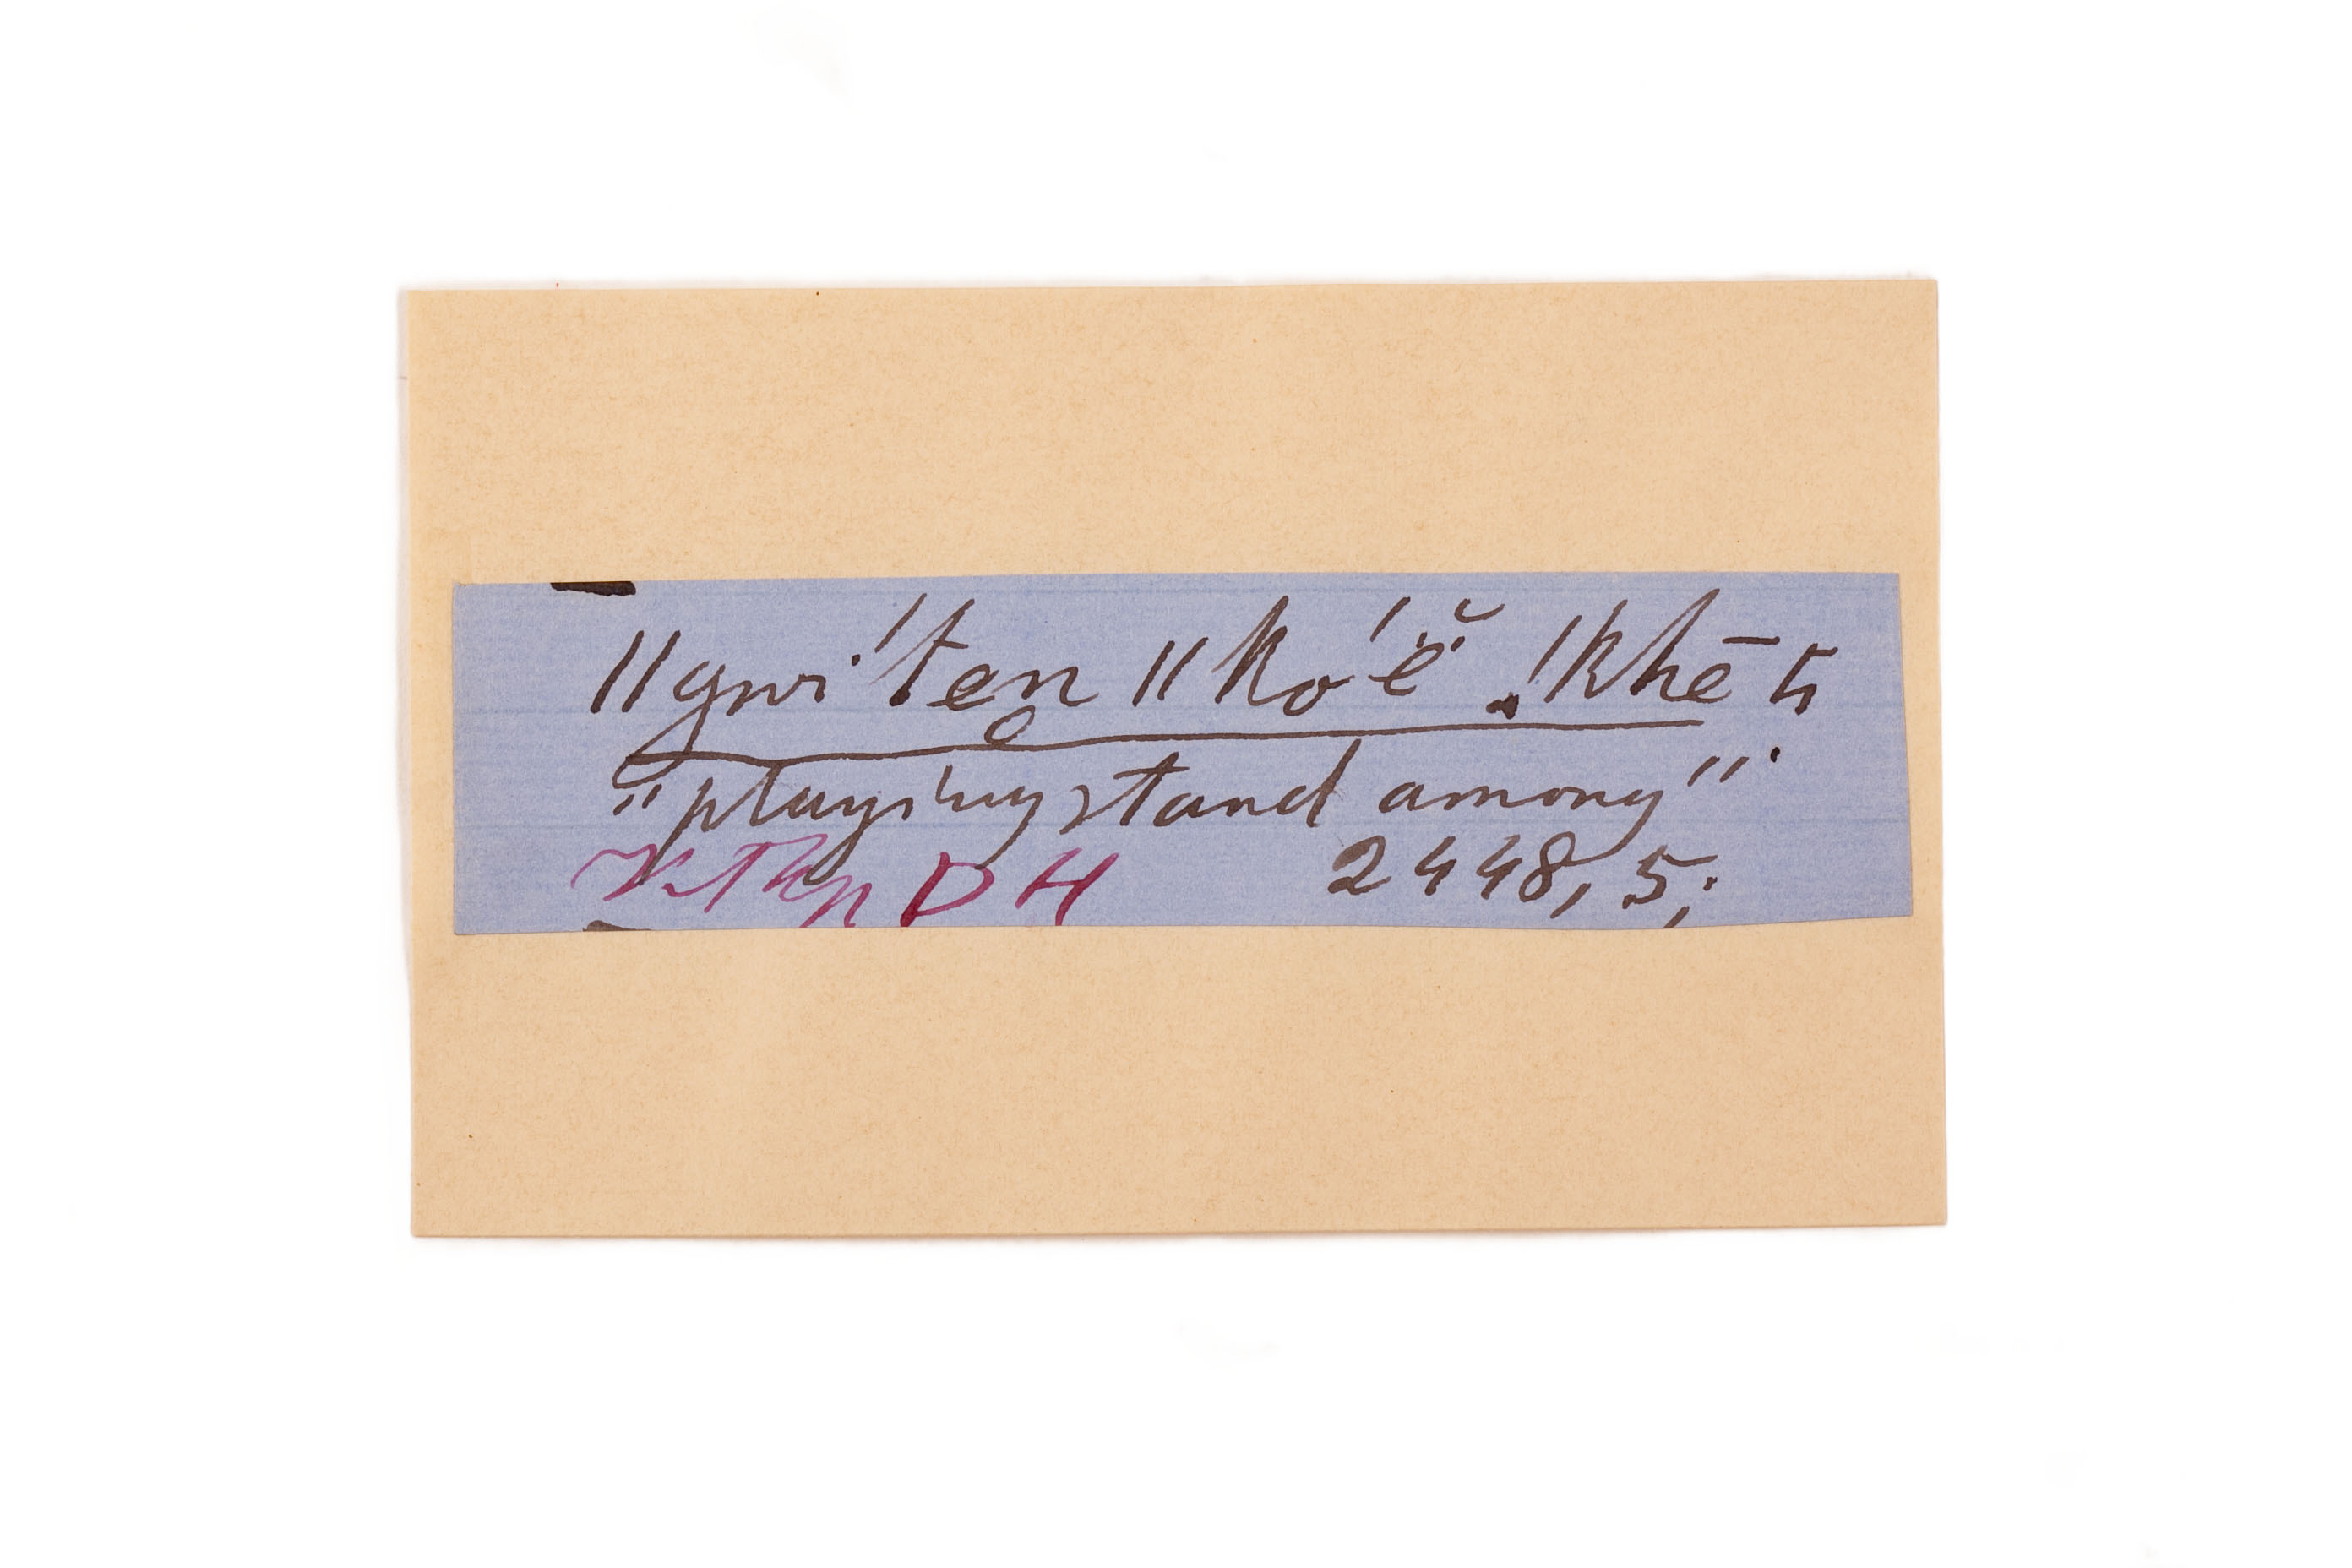 ǁgwí ten ǁkó ĕ̈ !khē ꞔ
"playing stand among".
DH 2448, 5;